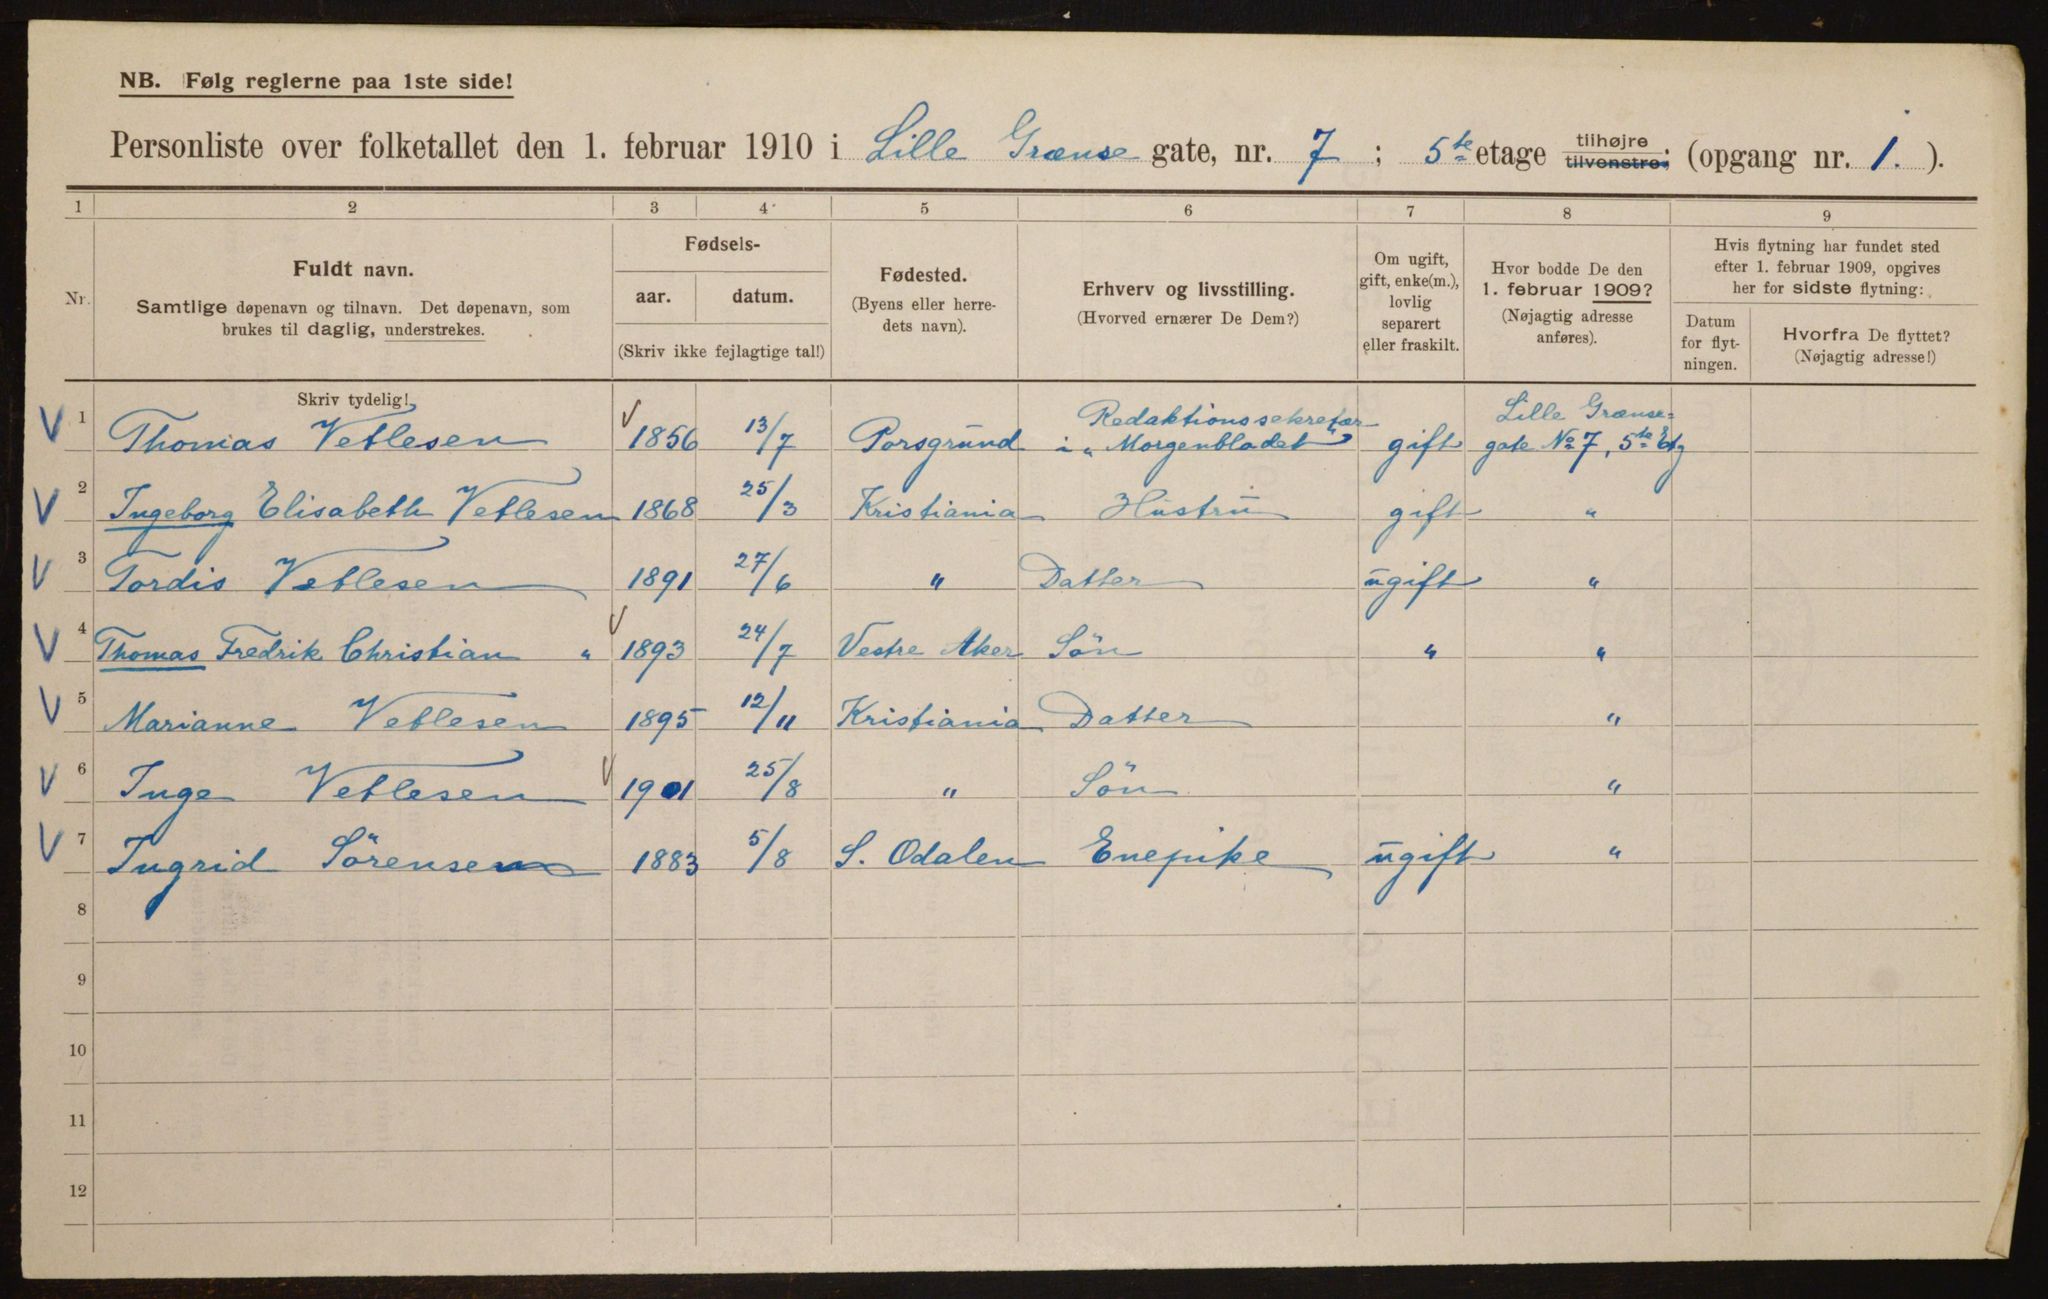 NB. Følg reglerne paa 1ste side!
Personliste over folketallet den 1. februar 1910 i Lille Grænse gate, nr. 7 ; 5te etage tilhøjre tilvenstre; (opgang nr. 1. ).
1 2 3 4 5 6 7 8 9
Nr.
Fuldt navn.
Samtlige døpenavn og tilnavn. Det døpenavn, som
brukes til daglig, understrekes.
Fødsels-
aar. datum.
(Skriv ikke fejlagtige tal!)
Fødested.
(Byens eller herre-
dets navn).
Erhverv og livsstilling.
(Hvorved ernærer De Dem?)
Om ugift,
gift, enke(m.),
lovlig
separert
eller fraskilt.
Hvor bodde De den
1. februar 1909?
(Nøjagtig adresse
anføres).
Hvis flytning har fundet sted
efter 1. februar 1909, opgives
her for sidste flytning:
Datum
for flyt-
ningen.
Hvorfra De flyttet?
(Nøjagtig adresse!)
Skriv tydelig!
1 Thomas Vetlesen 1856 13/7 Porsgrund Redaktionssekretær gift Lille Grænse=
i „Morgenbladet" gate No 7, 5te Etg
2 Ingeborg Elisabeth Vetlesen 1868 25/3 Kristiania Hustru gift "
3 Tordis Vetlesen 1891 27/6 " Datter ugift "
4 Thomas Fredrik Christian " 1893 24/7 Vestre Aker Sön " "
5 Marianne Vetlesen 1895 12/11 Kristiania Datter "
6 Inge Vetlesen 1901 25/8 " Sön "
7 Ingrid Sörensen 1883 5/8 S. Odalen Enepike ugift "
8
9
10
11
12